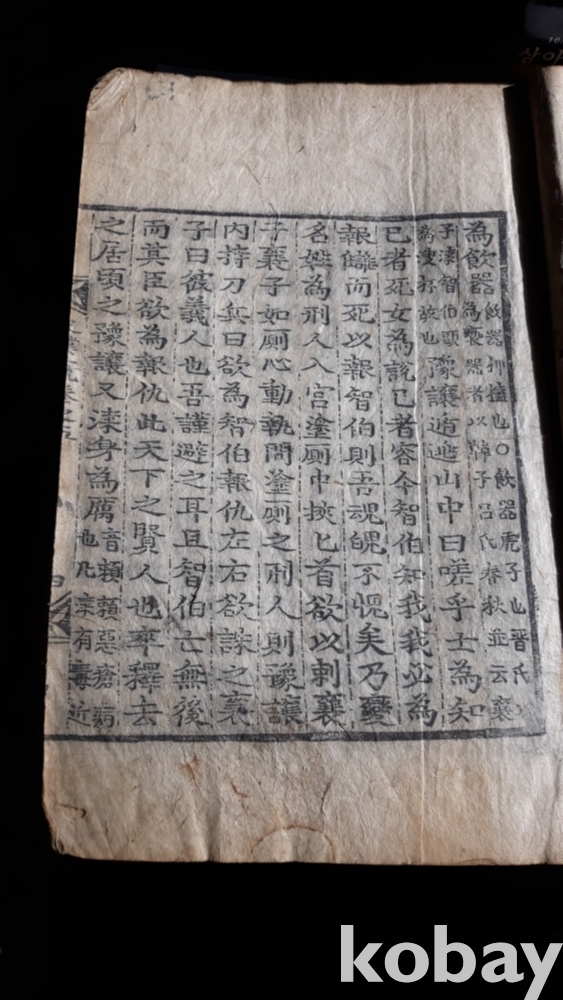 為飲器飲器椑榼也〇飲器虎子也晋氏
為褻器者以韓子呂氏春秋並云襄
子漆智伯頭
為溲杯故也豫讓遁逃山中曰嗟乎士為知
己者死女為說己者容今智伯知我我必為
報讎而死以報智伯則吾魂魄不愧矣乃變
名姓為刑人入宮塗厠中挾匕首欲以刺襄
子襄子如厠心動執問塗厠之刑人則豫讓
內持刀兵曰欲為智伯報仇左右欲誅之襄
子曰彼義人也吾謹避之耳且智伯亡無後
而其臣欲為報仇此天下之賢人也卒釋去
之居頃之豫讓又漆身為厲音賴賴惡瘡病
也凡漆有毒近
kobay